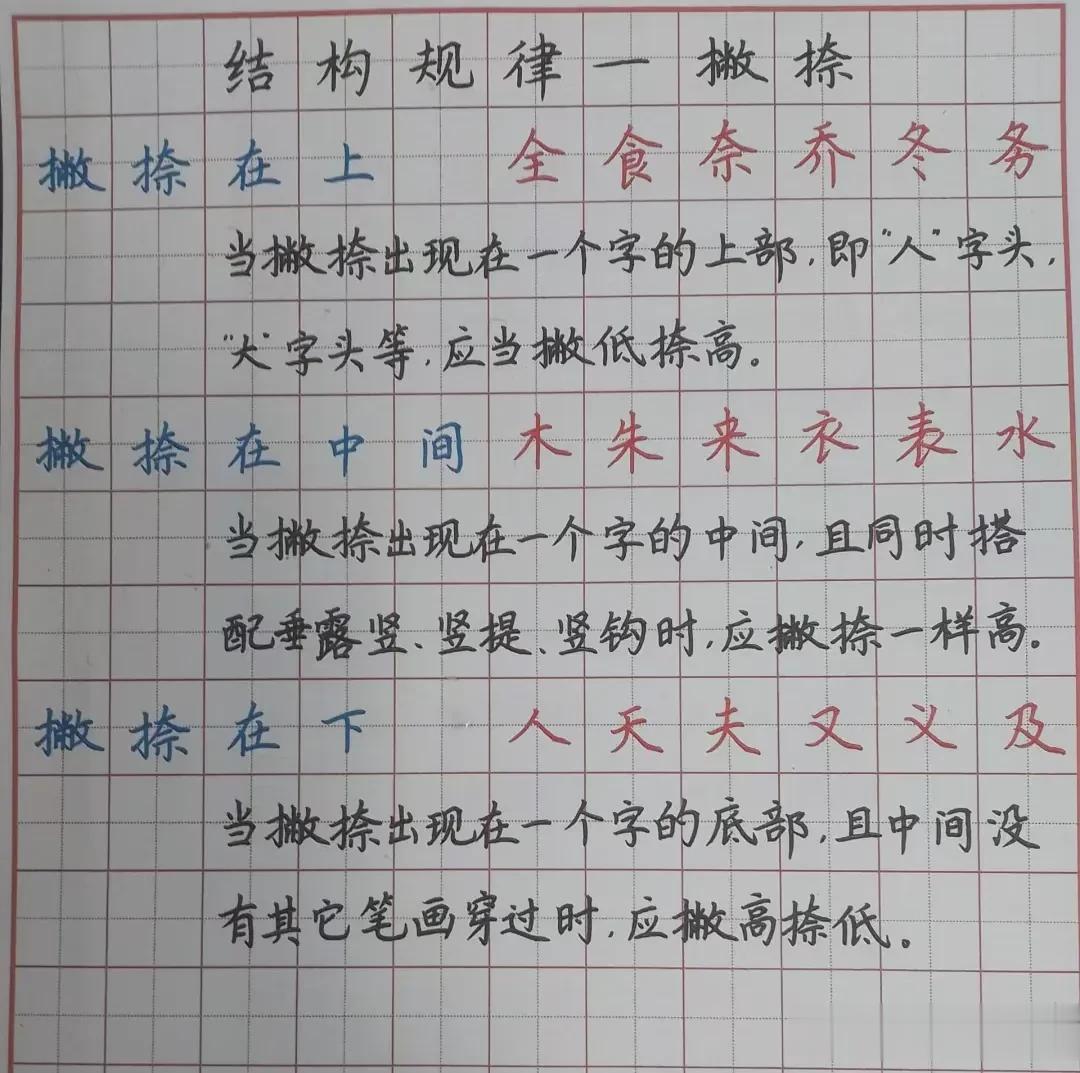 结构规律一撇捺
撇捺在上 全食奈乔冬务
当撇捺出现在一个字的上部,即"人"字头,
"大"字头等,应当撇低捺高。
撇捺在中间 木朱来衣表水
当撇捺出现在一个字的中间,且同时搭
配垂露竖、竖提、竖钩时,应撇捺一样高。
撇捺在下 人天夫又义及
当撇捺出现在一个字的底部,且中间没
有其它笔画穿过时,应撇高捺低。